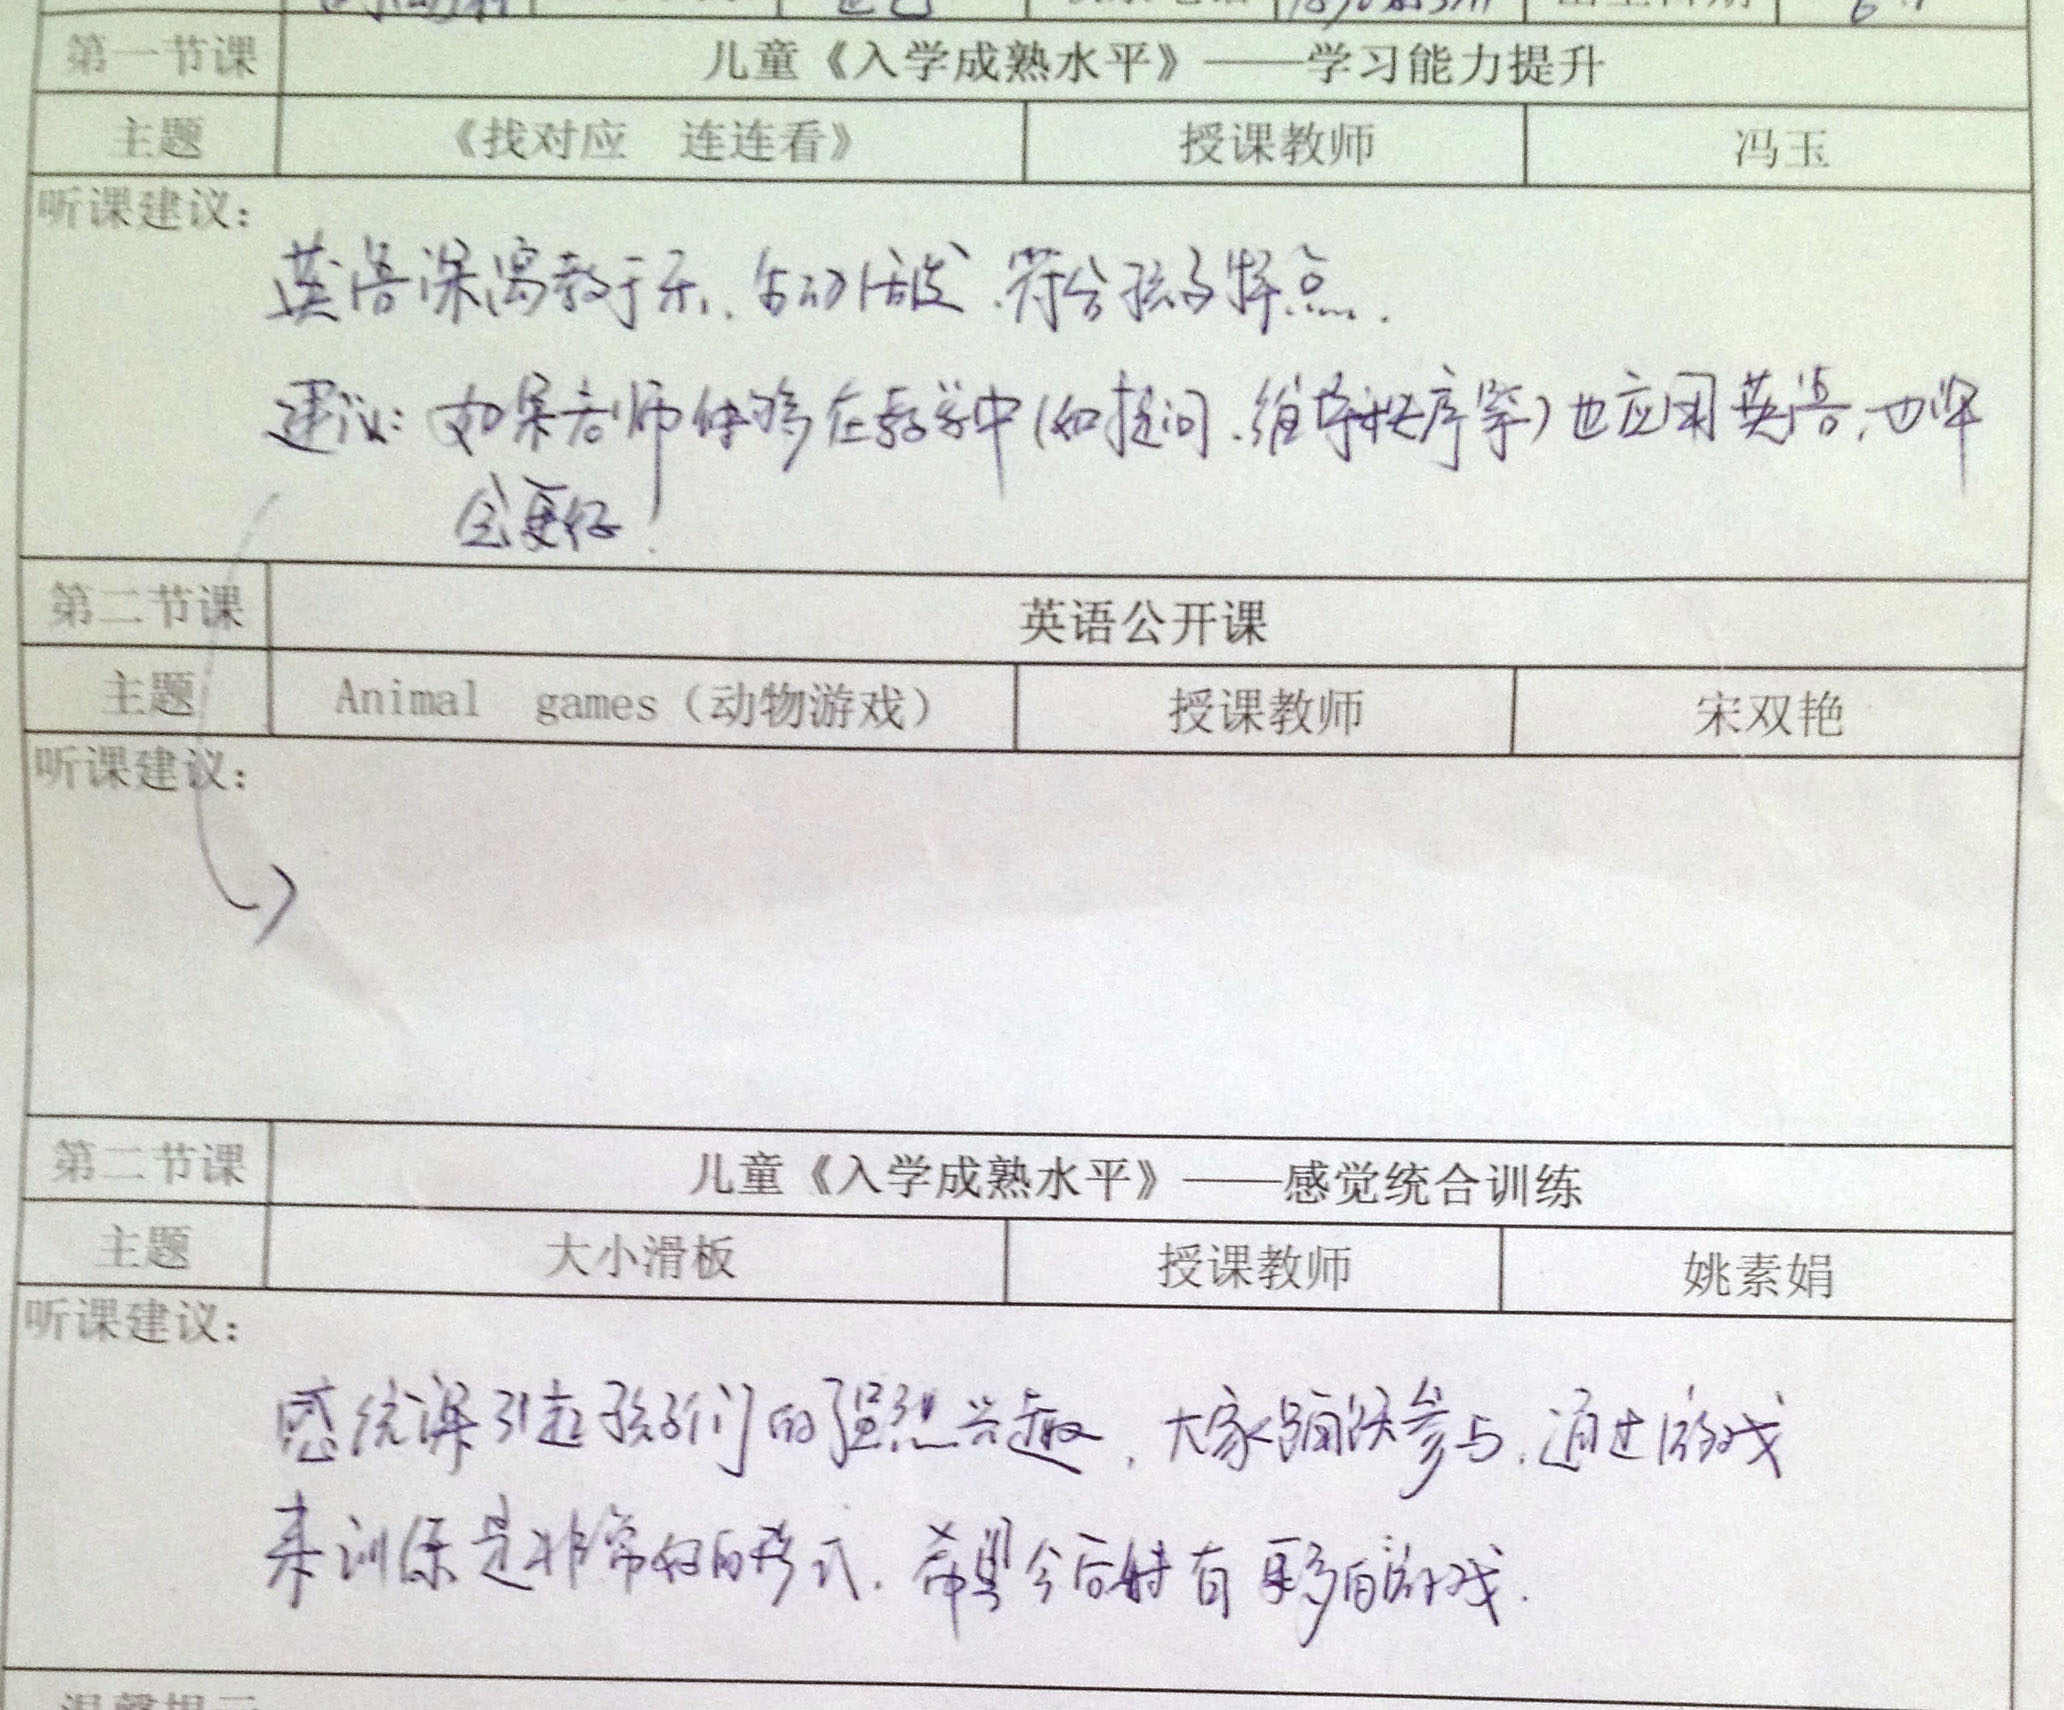 第一节课 儿童《入学成熟水平》——学习能力提升
主题 《找对应 连连看》 授课教师 冯玉
听课建议:
英语课寓教于乐、生动活泼、符合孩子特点.
建议: 如果老师能够在教学中(如提问、维持秩序等)也应用英语,也许
会更好!
第二节课 英语公开课
主题 Animal games(动物游戏) 授课教师 宋双艳
听课建议:
第二节课 儿童《入学成熟水平》——感觉统合训练
主题 大小滑板 授课教师 姚素娟
听课建议:
感统课引起孩子们的强烈兴趣,大家踊跃参与,通过游戏
来训练是非常好的形式.希望今后能有更多的游戏.
温馨提示